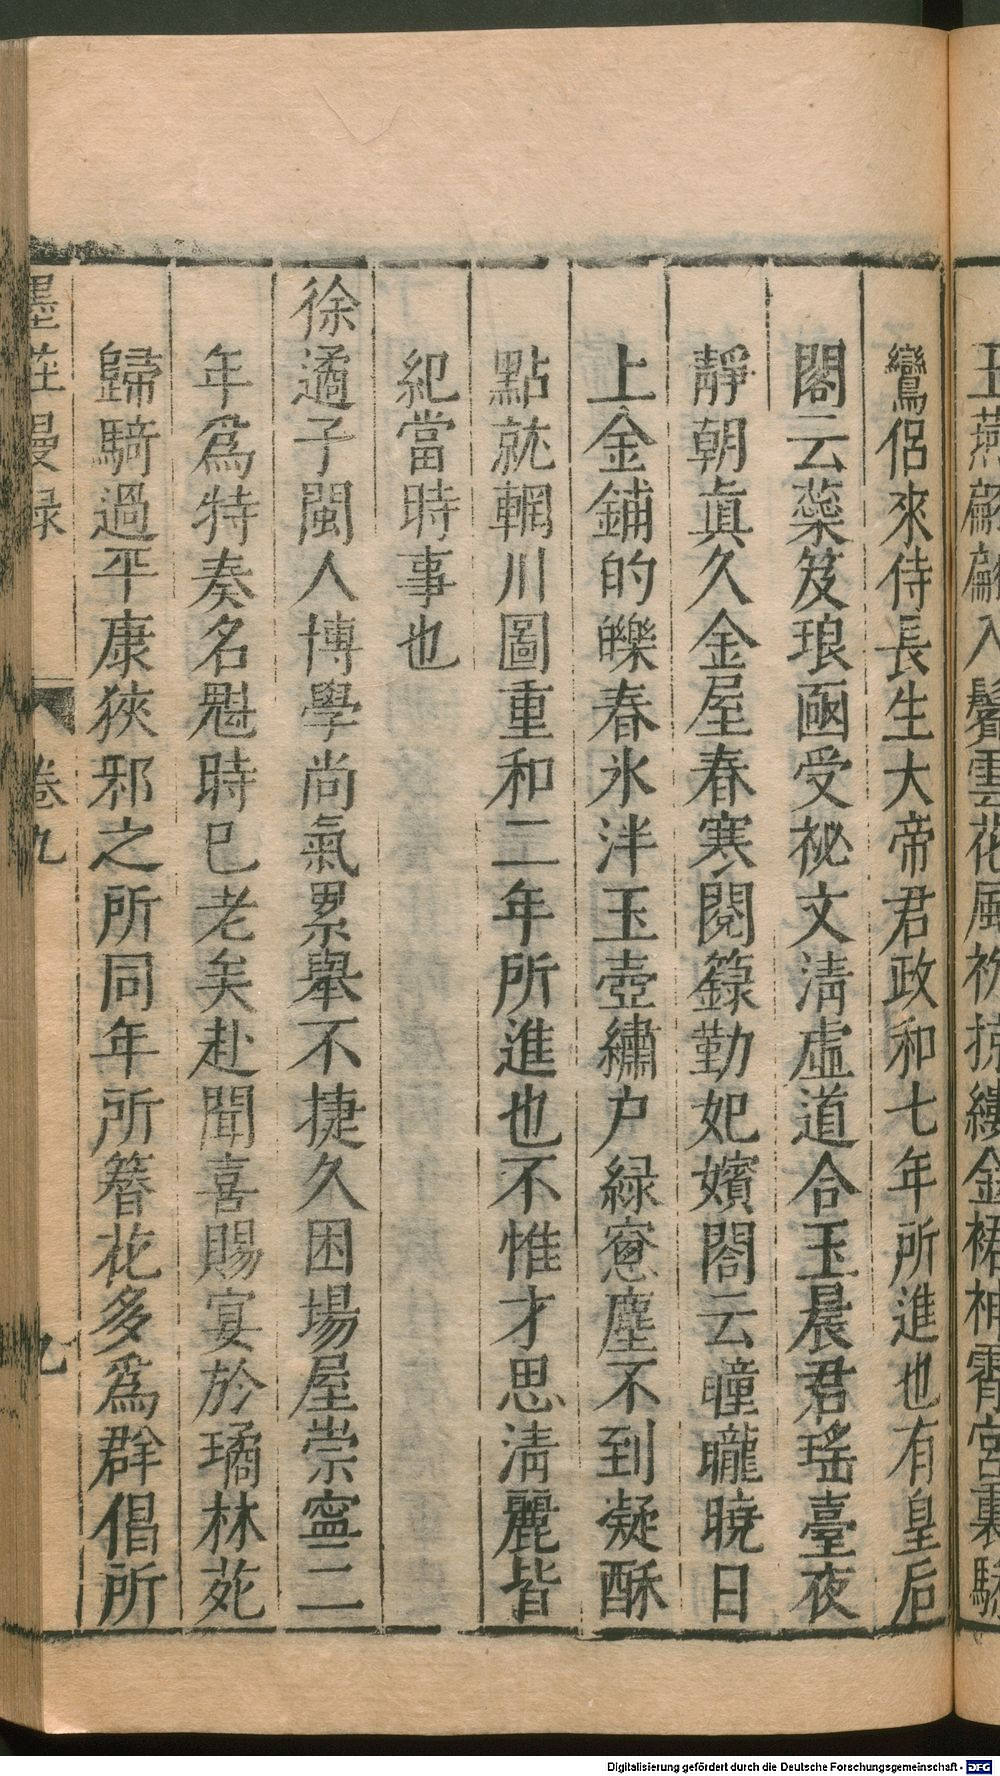 玉燕翩翩入鬢雲花風初掠縷金裙神霄宮裏驂
鸞侶來侍長生大帝君政和七年所進也有皇后
閣云蘂笈琅函受祕文淸虛道合玉晨君瑤臺夜
靜朝眞久金屋春寒閱籙勤妃嬪閤云曈曨曉日
上金鋪的皪春氷泮玉壺繡户緑窻塵不到凝酥
點就輞川圖重和二年所進也不惟才思淸麗皆
紀當時事也
徐遹子閩人博學尚氣累舉不捷久困場屋崇寧二
年爲特奏名魁時已老矣赴聞喜賜宴於璚林苑
歸騎過平康狹邪之所同年所簪花多爲群倡所
墨莊漫録 卷九 九
Digitalisierung gefördert durch die Deutsche Forschungsgemeinschaft - DFG